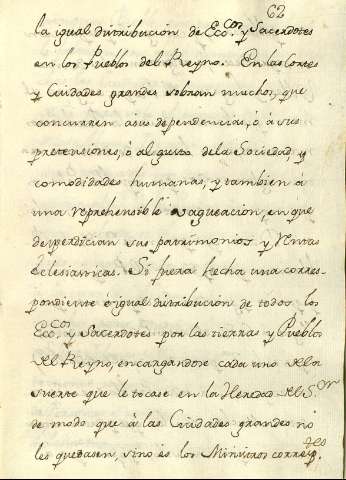 62
la igual distribución de Ecc.cos y Sacerdotes
en los Pueblos del Reyno. En las Cortes
y Ciudades grandes sobran muchos, que
concurren a sus dependencias, ó á sus
pretensiones, ó al gusto de la Sociedad, y
comodidades humanas, y tambien á
una reprehensible vagueacion, en que
desperdician sus patrimonios y rentas
eclesiasticas. Si fuera hecha una corres-
pondiente é igual distribución de todos los
Ecc.cos y Sacerdotes por las tierras y Pueblos
del Reyno, encargandose cada uno de la
suerte que le tocase en la Heredad del S.or
de modo que á las Ciudades grandes no
les quedasen, sino es los Ministros correspond.tes